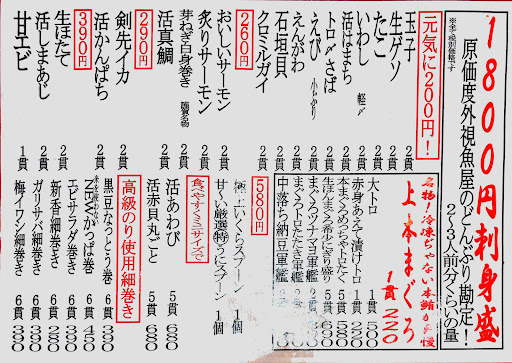 1800円刺身盛
原価度外視魚屋のどんぶり勘定！
2〜3人前分くらいの量
※全て税別価格です
元気に200円！
玉子 2貫
生ゲソ 2貫
たこ 2貫
いわし 軽〆 2貫
活はまち 2貫
トロ〆さば 2貫
えび 小ぶり 2貫
えんがわ 2貫
石垣貝 2貫
クロミルガイ 2貫
260円
おいしいサーモン 2貫
炙りサーモン 2貫
芽ねぎ白身巻き 隠演名物 2貫
活真鯛 2貫
290円
剣先イカ 2貫
活かんぱち 2貫
390円
生ほたて 2貫
活しまあじ 2貫
甘エビ 1貫
名物！冷凍ぢゃない本鮪が自慢
上本まぐろ
1貫220
大トロ 1貫500
赤身あえて漬け
本まぐろめっちゃトロたく
生ほんまぐろ希少にぎり盛り
まぐろツナマヨ軍艦
まぐろトロたたき軍艦
中落ち納豆軍艦
580円
極上いくらスプーン 1個
甘うい厳選特うにスプーン 1個
食べやすくミニサイズで
活あわび 5貫 680
活赤貝丸ごと 5貫 680
高級のり使用細巻き
黒豆なっとう巻 6貫 390
NEWかっぱ巻 6貫 450
エビサラダ巻き 6貫 390
新香戸細巻き 6貫 290
ガリサバ細巻き 6貫 390
梅イワシ細巻き 6貫 390